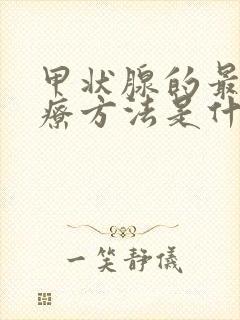 甲状腺的最
疗方法是什
一笑静仪